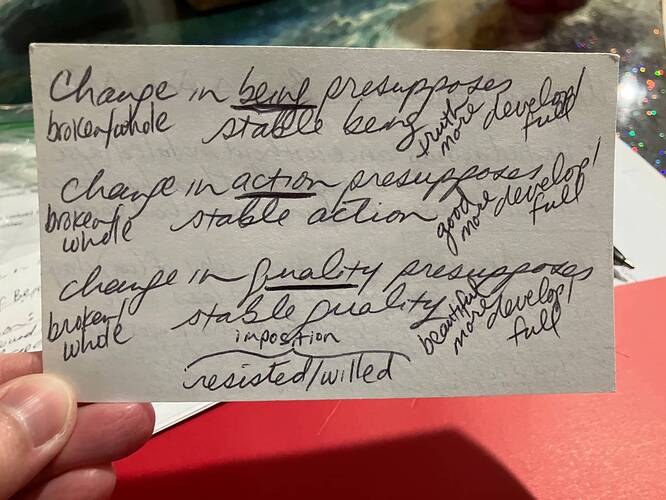 Change in being presupposes
broken/whole stable being truth more develop/ full
change in action presupposes
broken/ whole stable action good more develop/ full
change in quality presupposes
broken/ whole stable quality beautiful more develop/ full
imposition
resisted/willed